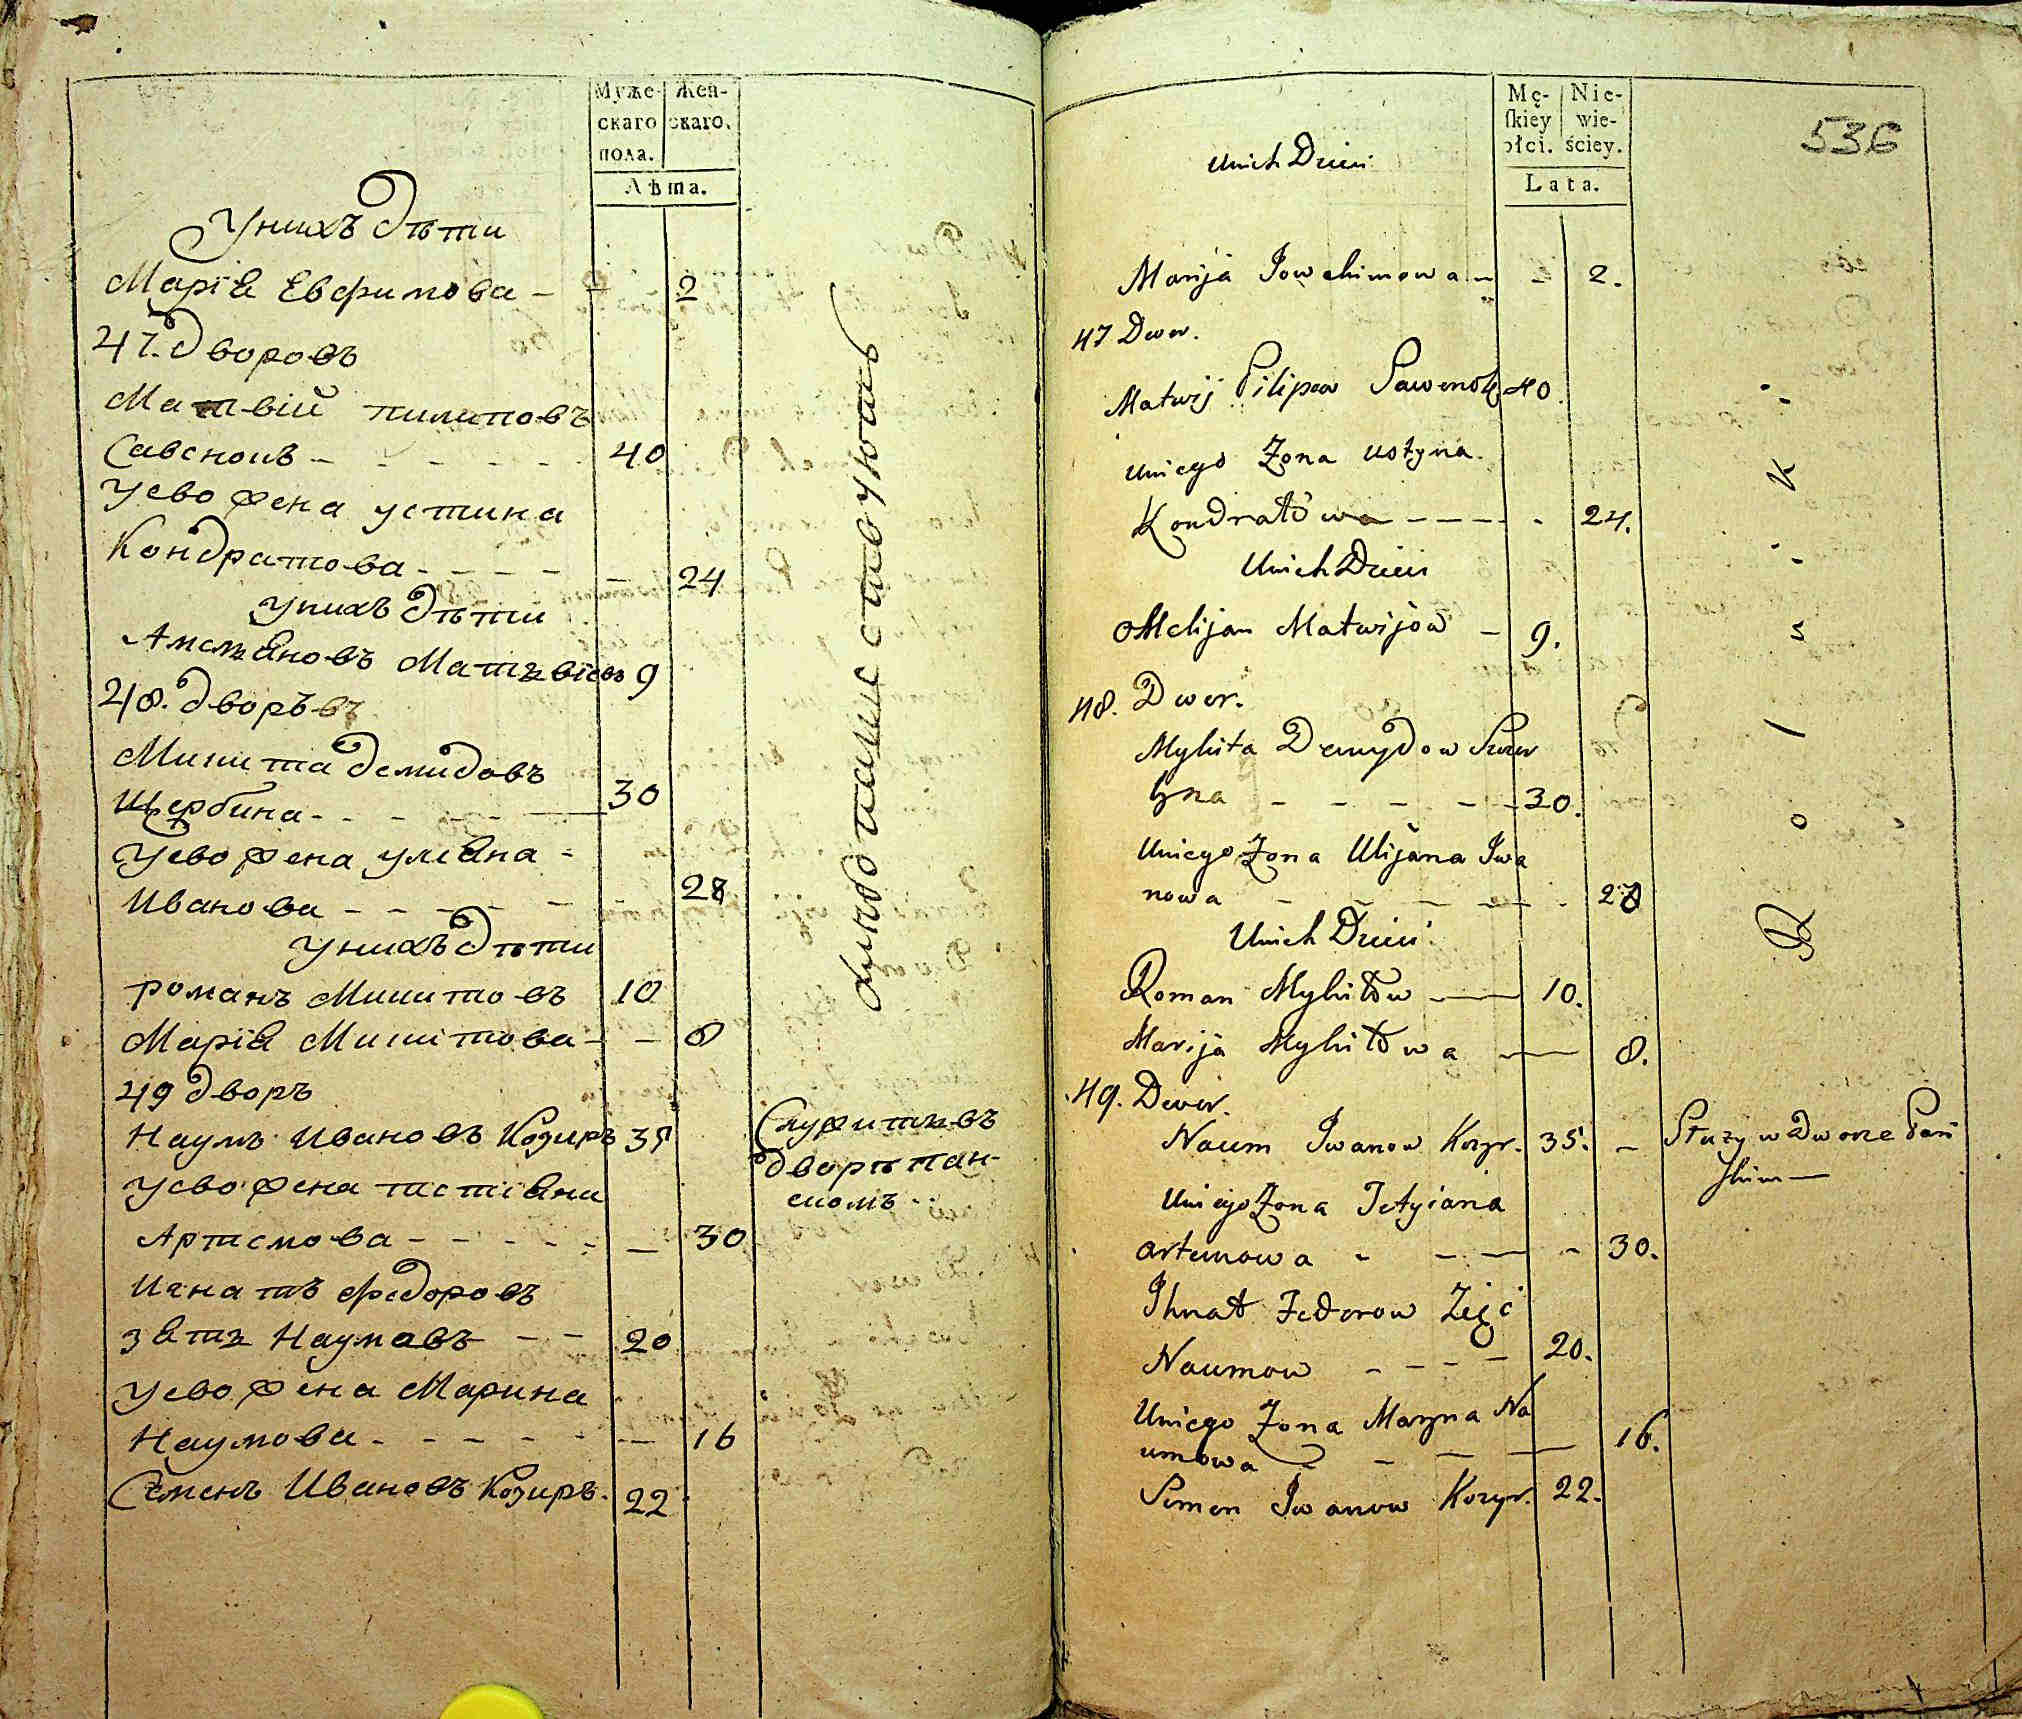 Муже- Жен-
скаго скаго.
пола.
Лѣта.
Унихъ дѣти
Марїя Евфимова - - 2
47. дворовъ
Матвій пилиповъ
Савенокъ - - - - 40
Уево жена устина
Кондратова - - - - - 24
Унихъ дѣти
Амельяновъ Матьвіевъ 9
48. дворъвъ
Микита демидовъ
Щербина - - - - 30
Уево жена уліяна -
Иванова - - - - - 28
Унихъ дѣти
романъ Микитовъ 10
Марїя Микитова - - 8
49 дворъ
Наумъ Ивановъ Козиръ 35
Служитьвъ
дворѣ пан-
скомъ
Уево жена тетіяна
Артемова - - - - - - 30
Игнатъ Федоровъ
зять Наумовъ - - 20
Уево жена Марина
Наумова - - - - - - 16
Семенъ Ивановъ Козиръ. 22
хлѣбопашествуютъ
536
Mę- Nie-
ſkiey wie-
płci. ściey.
Lata.
Unich Dzieci
Marija Jowchimowa - - 2.
47 Dwor.
Matwij Pilipow Sawenok 40.
Uniego Żona Ustyna.
Kondratowa - - - - - 24.
Unich Dzieci
Omelijan Matwijów - 9.
48. Dwor.
Mykita Demydow Szczer
byna - - - - - 30.
Uniego Żona Ulijana Iwa
nowa - - - - - 28
Unich Dzieci
Roman Mykitów - 10.
Marija Mykitowa - 8.
49. Dwor.
Naum Iwanow Kozyr. 35. -
Służy w Dworze Pań
skim -
Uniego Żona Tetyiana
Artemowa - - - - 30.
Ihnat Fedorow Zięć
Naumow - - - - 20.
Uniego Żona Maryna Na
umowa - - - - 16.
Semen Iwanow Kozyr. 22.
Rolniki.